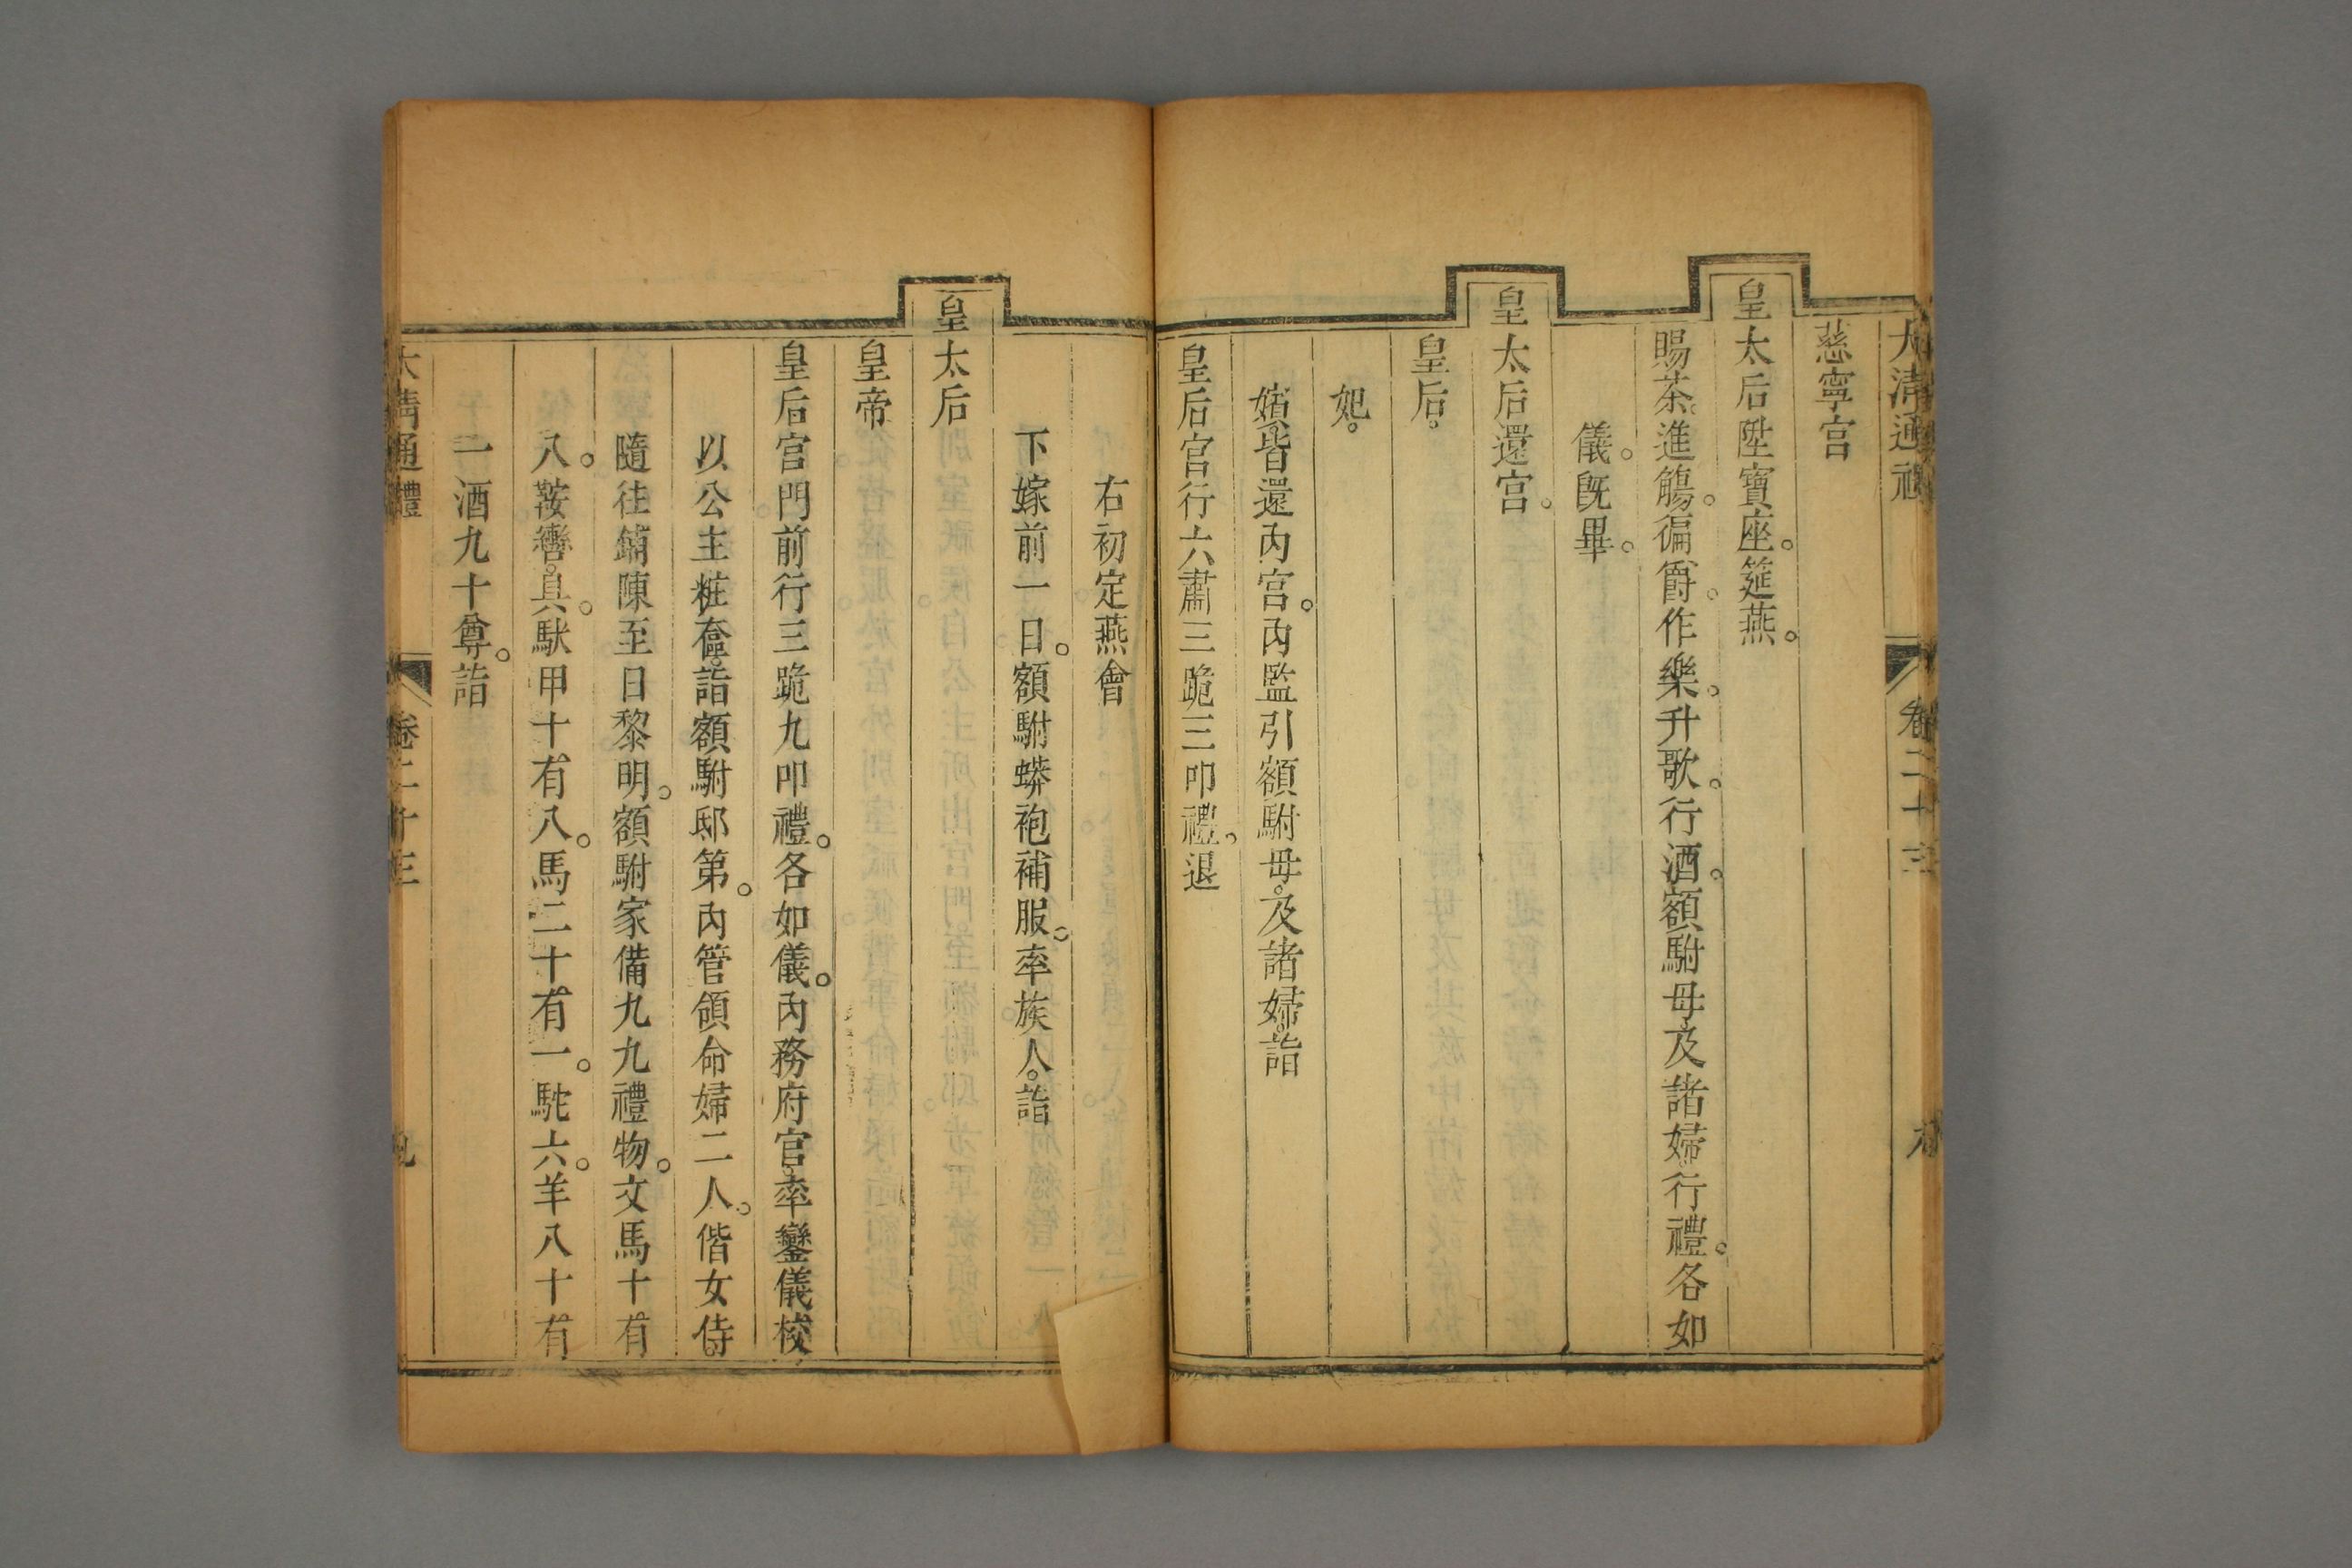 大清通禮 卷二十三
慈寧宮
皇太后陞寶座。筵燕。
賜茶。進觴。徧𣝣。作樂。升歌。行酒。額駙母及諸婦行禮。各如
儀。旣畢。
皇太后還宮。
皇后。
妃。
嬪。皆還內宮。內監引額駙母。及諸婦。詣
皇后宮行六肅三跪三叩禮。退
右初定燕會
下嫁前一日。額駙蟒袍補服。率族人。詣
皇太后
皇帝
皇后宮門前行三跪九叩禮。各如儀。內務府官。率鑾儀校
以公主粧奩。詣額駙邸第。內管領命婦二人。偕女侍。
隨往鋪陳至日黎明。額駙家備九九禮物。文馬十有
八。鞍轡。具。馱甲十有八。馬二十有一。駝六。羊八十有
一酒九十尊。詣
大清通禮 卷二十三 九